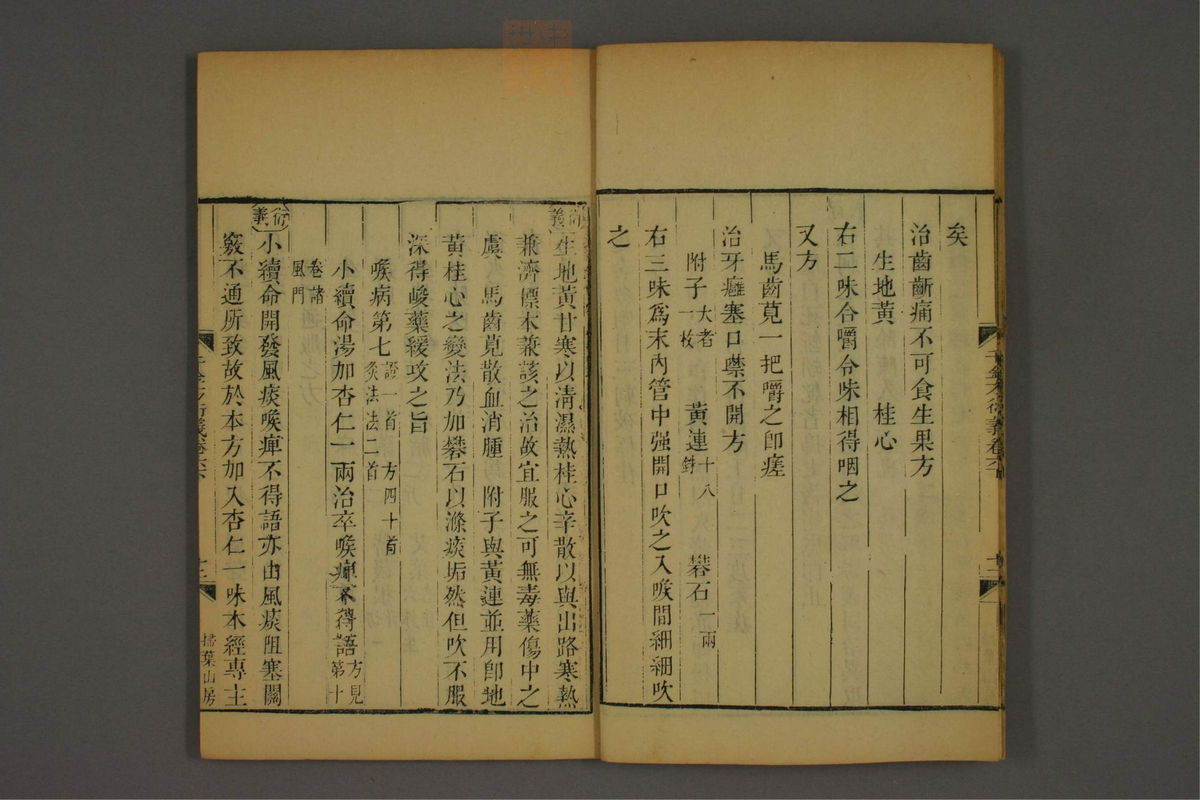 矣
治齒齗痛不可食生果方
生地黃 桂心
右二味合嚼令味相得咽之
又方
馬齒莧一把嚼之卽瘥
治牙癰塞口噤不開方
附子大者一枚 黃連十八銖 礬石一兩
右三味爲末內管中强開口吹之入喉間細細吹
之
衍義生地黃甘寒以清濕熱桂心辛散以與出路寒熱
兼濟標本兼該之治故宜服之可無毒藥傷中之
虞 馬齒莧散血消腫 附子與黃連並用卽地
黃桂心之變法乃加礬石以滌痰垢然但吹不服
深得峻藥緩攻之旨
喉病第七證一首 方四十首 灸法法二首
小續命湯加杏仁一兩治卒喉痺不得語方見第十
卷諸風門
衍義小續命開發風痰喉痺不得語亦由風痰阻塞關
竅不通所致故於本方加入杏仁一味本經專主
掃葉山房